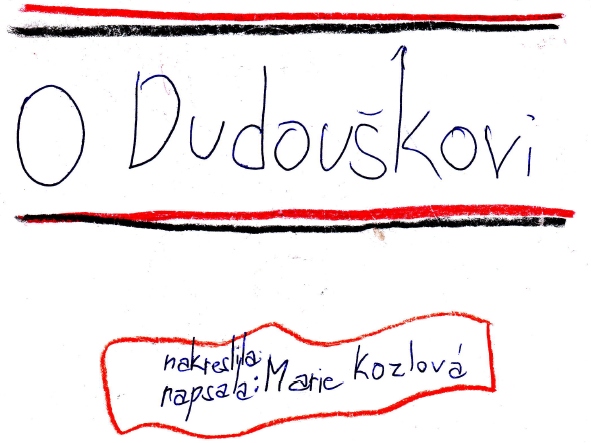 O Dudouškovi
nakreslila:
napsala: Marie Kozlová